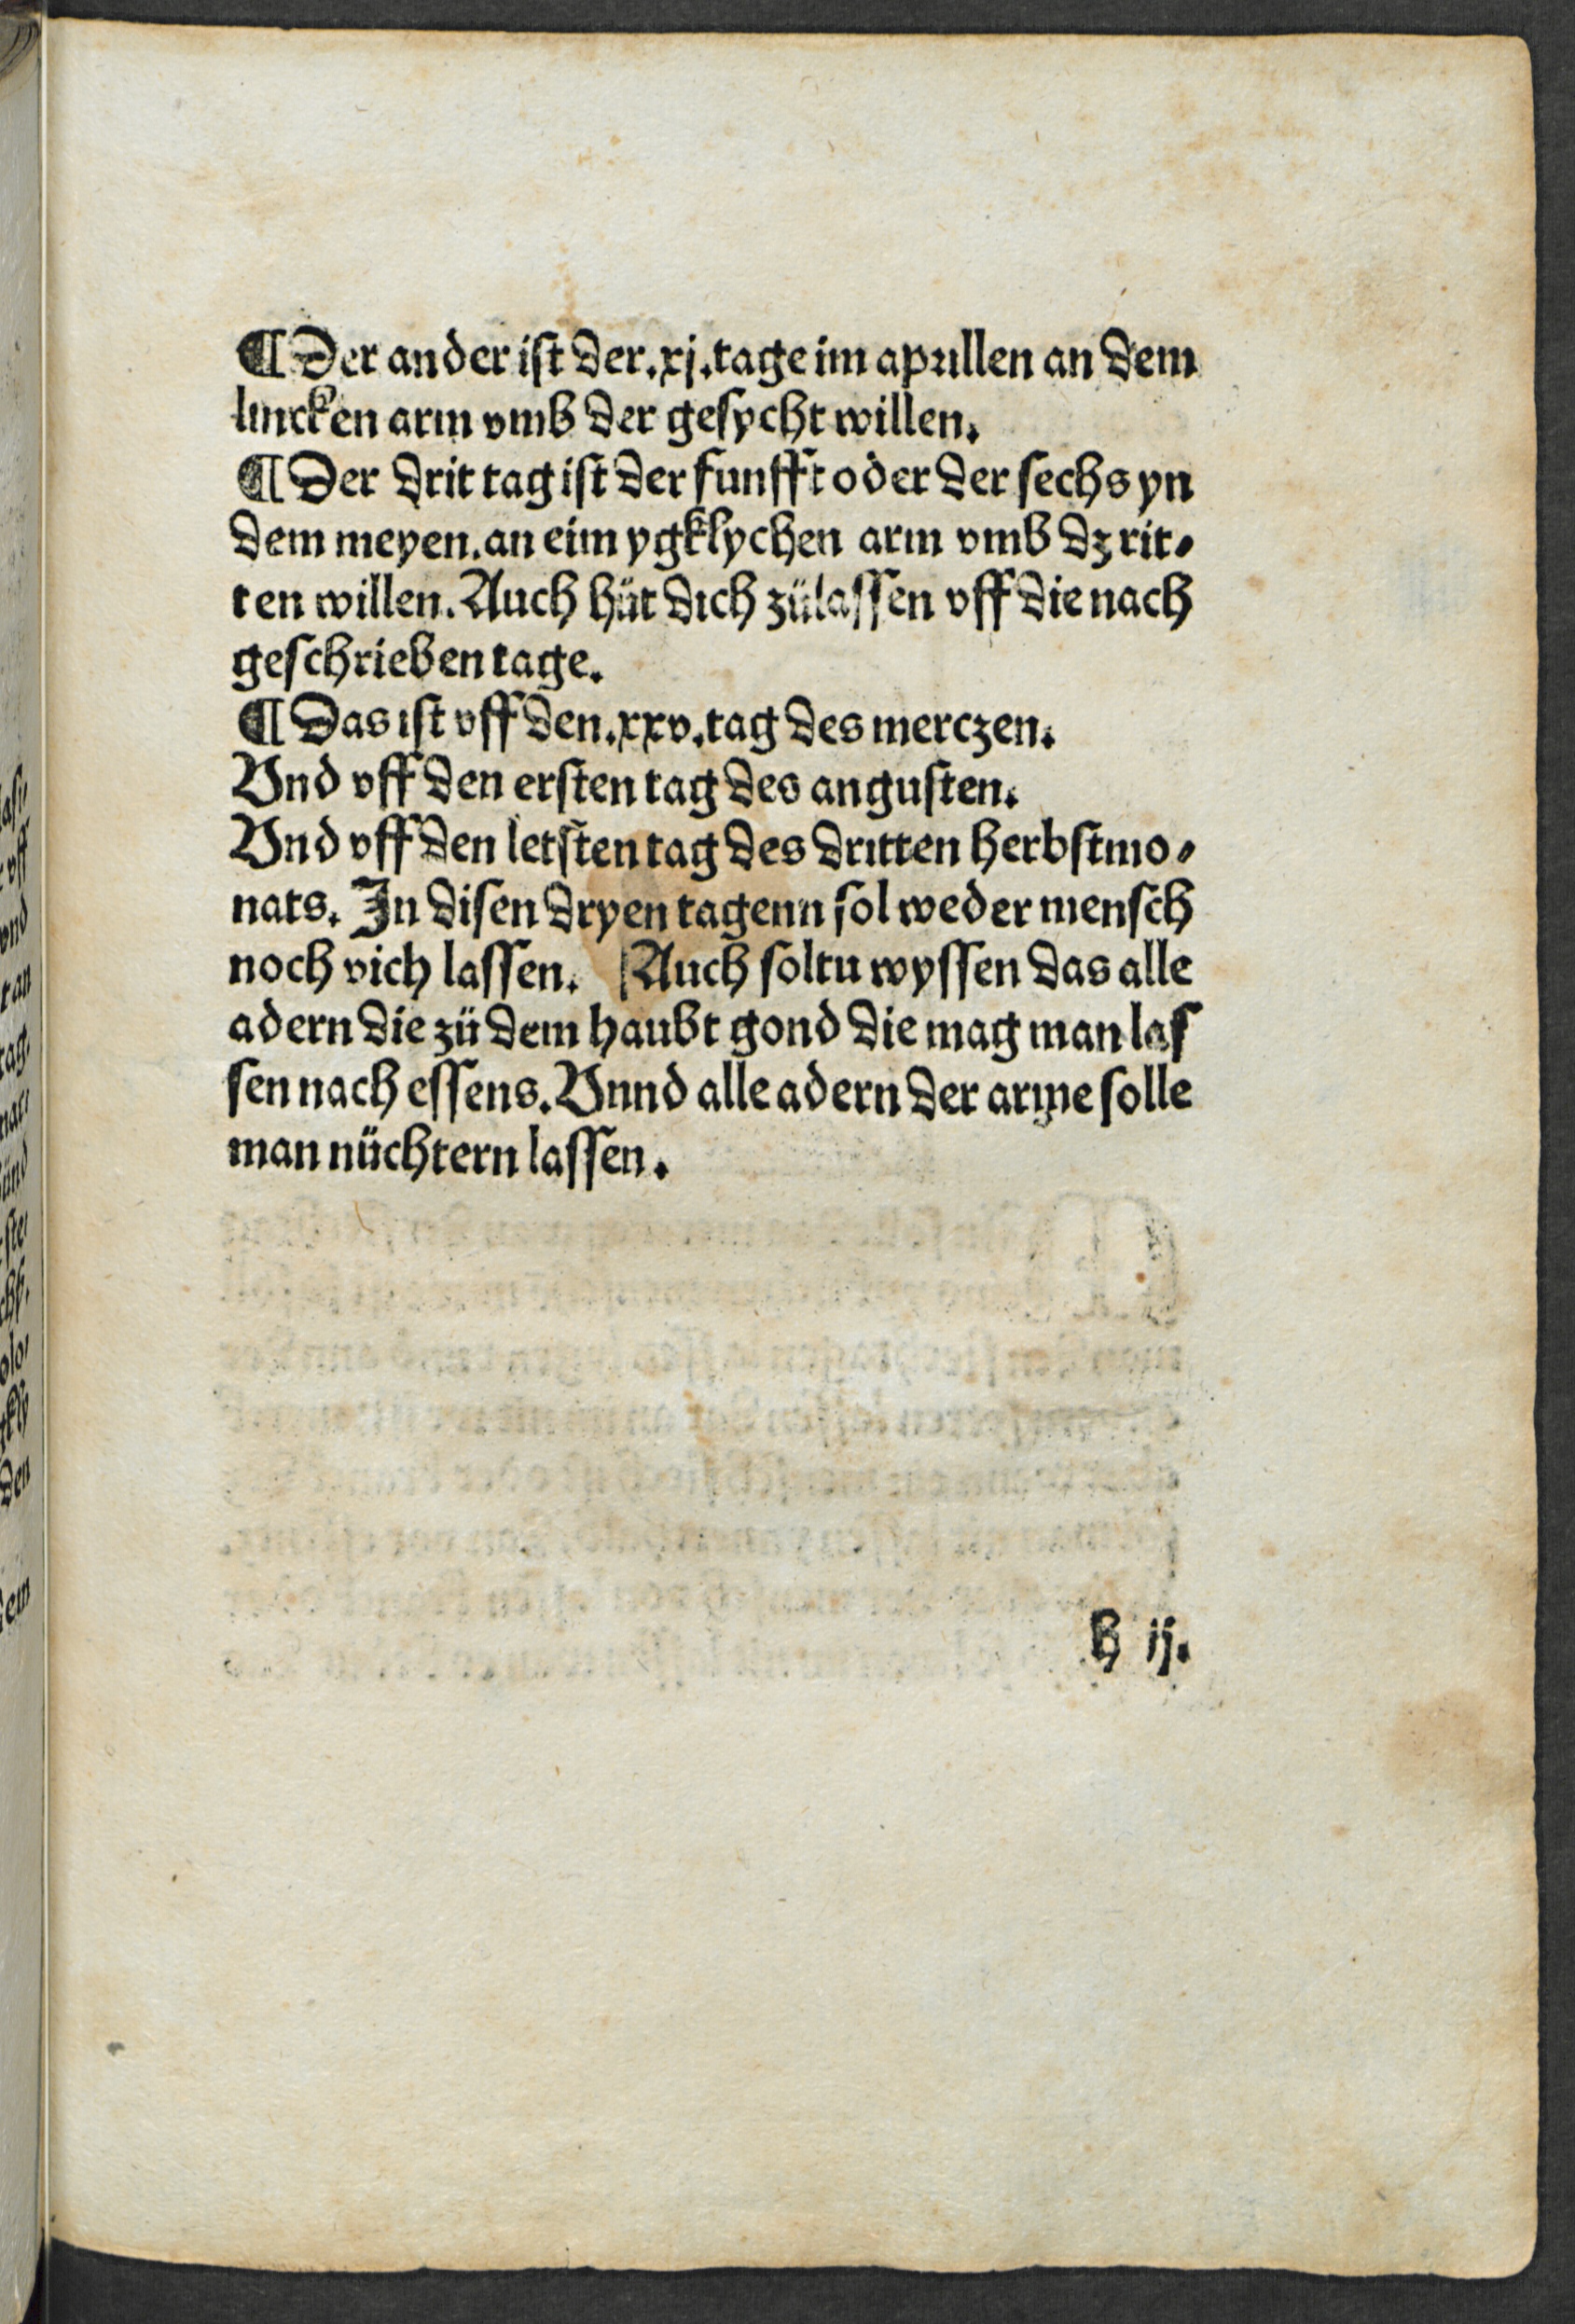 ¶ Der ander ist der .xj. tage im apꝛillen an dem
lincken arm vmb der gesycht willen.
¶ Der drit tag ist der funfft oder der sechs yn
dem meyen. an eim ygklychen arm vmb dz rit⸗
ten willen. Auch hüt dich zülassen vff die nach
geschrieben tage.
¶ Das ist vff den .xxv. tag des merczen.
Vnd vff den ersten tag des angusten.
Vnd vff den letsten tag des dritten herbstmo⸗
nats. In disen dryen tagenn sol weder mensch
noch vich lassen. Auch soltu wyssen das alle
adern die zü dem haubt gond die mag man las
sen nach essens. Vnnd alle adern der arme solle
man nüchtern lassen.
h ij.